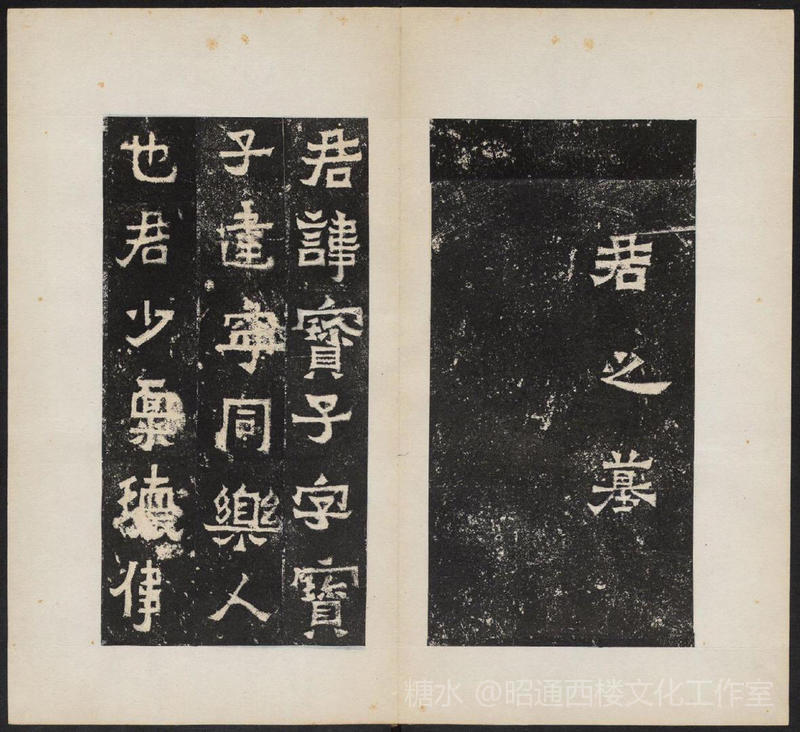 君之墓
君諱寶子字寶
子建寧同樂人
也君少稟瓌偉
糖水 @昭通西楼文化工作室